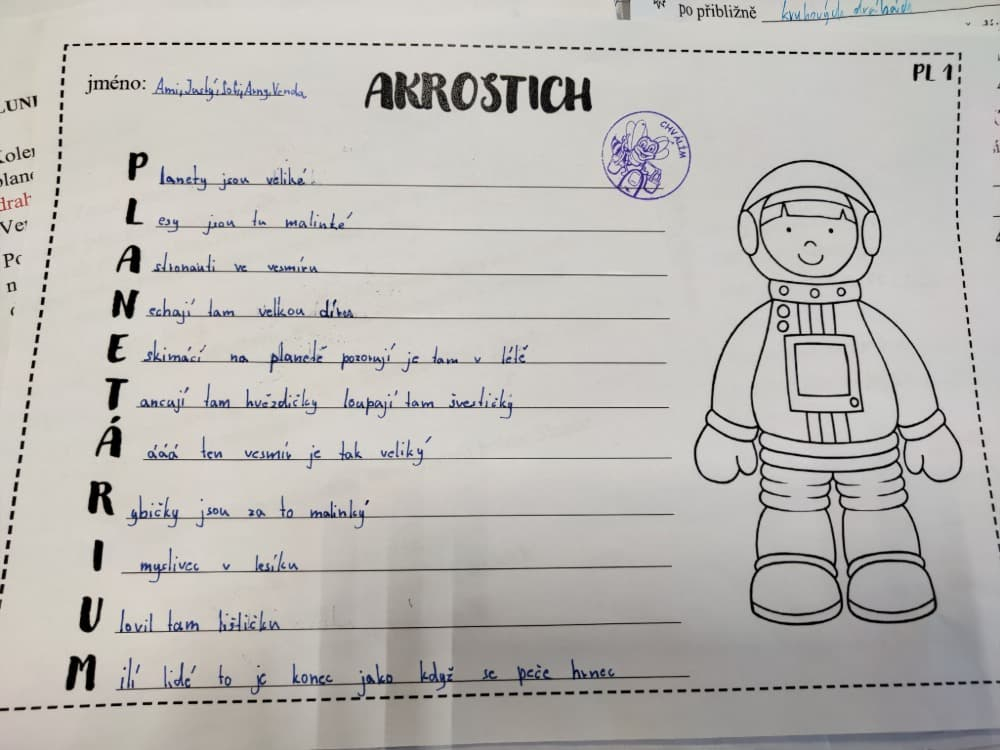 po přibližně kruhových drahách
PL 1
jméno: Ami, Jucký, Soti, Amg, Venda
AKROSTICH
CHVÁLÍM
Planety jsou veliké.
Lesy jsou tu malinké
Astronauti ve vesmíru
Nechají tam velkou díru
Eskimácí na planetě pozorují je tam v létě
Tancují tam hvězdičky loupají tam švestičký
Áááá ten vesmír je tak veliký
Rybičky jsou za to malinký
I myslivec v lesíku
Ulovil tam lištičku
Milí lidé to je konec jako když se peče hrnec